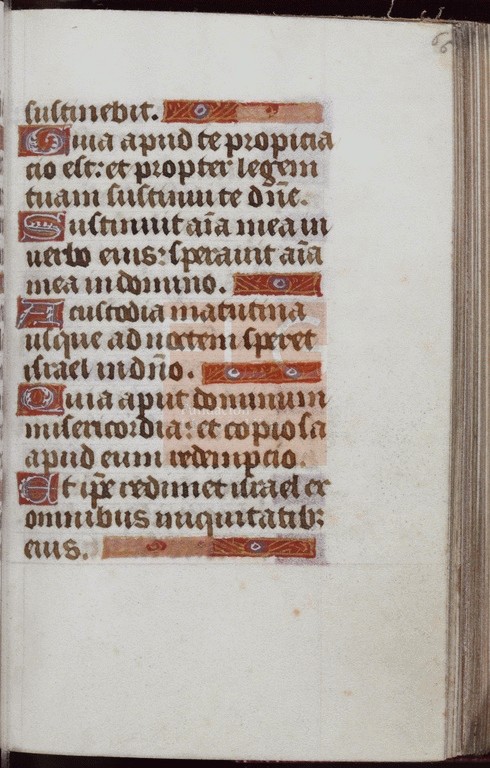 66
sustinebit.
Quia apud te propicia
cio est: et propter legem
tuam sustinui te dn̄e.
Sustinuit aīa mea in
uerbo eius: sperauit aīa
mea in domino.
A custodia matutina
usque ad noctem speret
israel in dn̄o.
Quia aput dominum
misericordia: et copiosa
apud eum redempcio.
Et ip̄e redimet israel ex
omnibus iniquitatib;
eius.